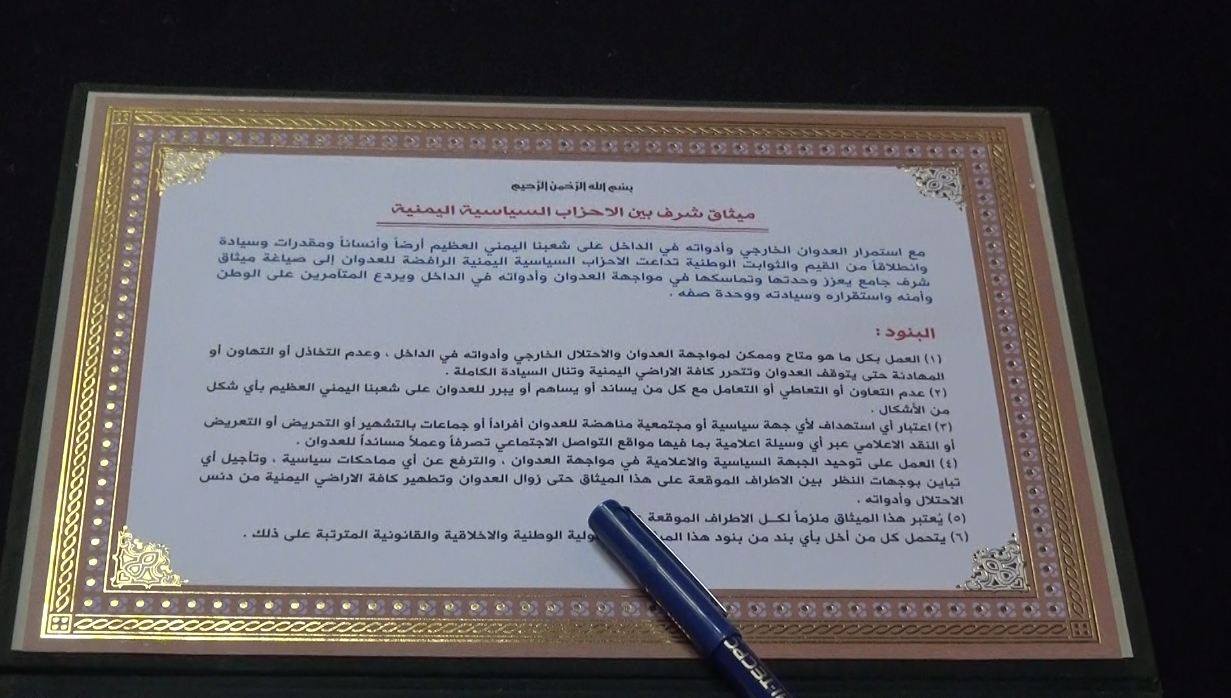 بسم الله الرحمن الرحيم
ميثاق شرف بين الاحزاب السياسية اليمنية
مع استمرار العدوان الخارجي وأدواته في الداخل على شعبنا اليمني العظيم أرضاً وأنساناً ومقدرات وسيادة
وانطلاقاً من القيم والثوابت الوطنية تداعت الاحزاب السياسية اليمنية الرافضة للعدوان إلى صياغة ميثاق
شرف جامع يعزز وحدتها وتماسكها في مواجهة العدوان وأدواته في الداخل ويردع المتآمرين على الوطن
وأمنه واستقراره وسيادته ووحدة صفه .
البنود :
(١) العمل بكل ما هو متاح وممكن لمواجهة العدوان والاحتلال الخارجي وأدواته في الداخل ، وعدم التخاذل أو التهاون أو
المهادنة حتى يتوقف العدوان وتتحرر كافة الاراضي اليمنية وتنال السيادة الكاملة .
(٢) عدم التعاون أو التعاطي أو التعامل مع كل من يساند أو يساهم أو يبرر للعدوان على شعبنا اليمني العظيم بأي شكل
من الأشكال .
(٣) اعتبار أي استهداف لأي جهة سياسية أو مجتمعية مناهضة للعدوان أفراداً أو جماعات بالتشهير أو التحريض أو التعريض
أو النقد الاعلامي عبر أي وسيلة اعلامية بما فيها مواقع التواصل الاجتماعي تصرفاً وعملاً مسانداً للعدوان .
(٤) العمل على توحيد الجبهة السياسية والاعلامية في مواجهة العدوان ، والترفع عن أي مماحكات سياسية ، وتأجيل أي
تباين بوجهات النظر بين الاطراف الموقعة على هذا الميثاق حتى زوال العدوان وتطهير كافة الاراضي اليمنية من دنس
الاحتلال وأدواته .
(٥) يُعتبر هذا الميثاق ملزماً لكل الاطراف الموقعة
(٦) يتحمل كل من أخل بأي بند من بنود هذا الوطنية والاخلاقية والقانونية المترتبة على ذلك .